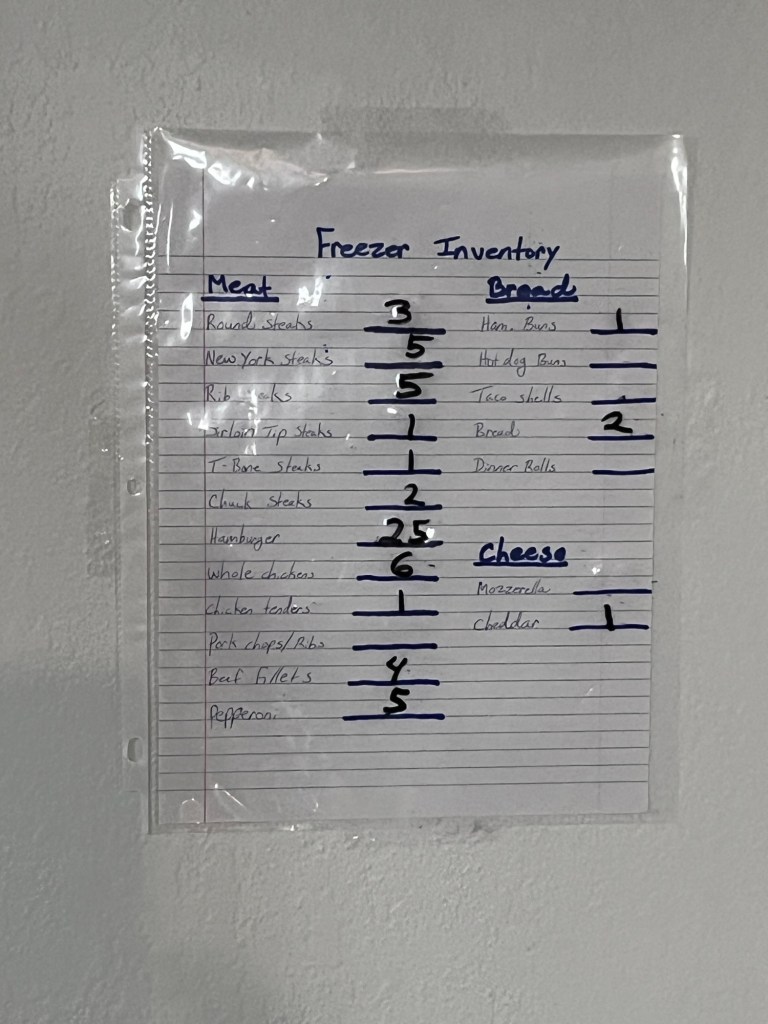 Freezer Inventory
Meat
Round Steaks 3
New York Steaks 5
Rib 5
Sirloin Tip Steaks 1
T-Bone Steaks 1
Chuck Steaks 2
Hamburger 25
Whole chickens 6
Chicken tenders 1
Pork chops/Ribs
Beef fillets 4
Pepperoni 5
Bread
Ham. Buns 1
Hot dog Buns
Taco shells
Bread 2
Dinner Rolls
Cheese
Mozzerella
Cheddar 1